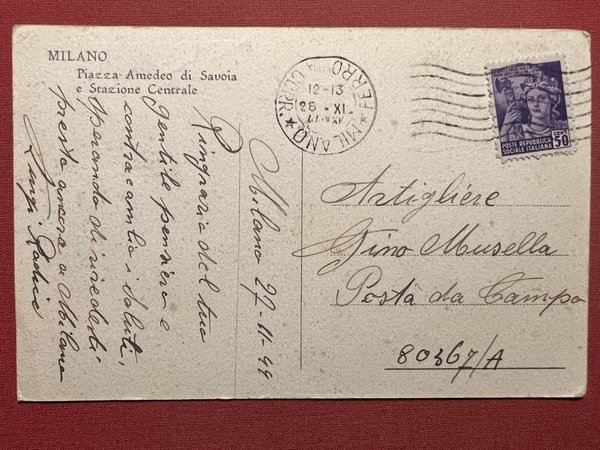 MILANO
Piazza Amedeo di Savoia
e Stazione Centrale
Ringrazio del tuo
gentile pensiero e
contracambio i saluti,
sperando di rivederti
presto ancora a Milano
Luigi Radice
Milano 27-11-44
MILANO
FERROVIA CORR.
12-13
28 - XI
POSTE REPUBBLICA
SOCIALE ITALIANA
CENT
50
Artigliere
Gino Musella
Posta da Campo
80367/A